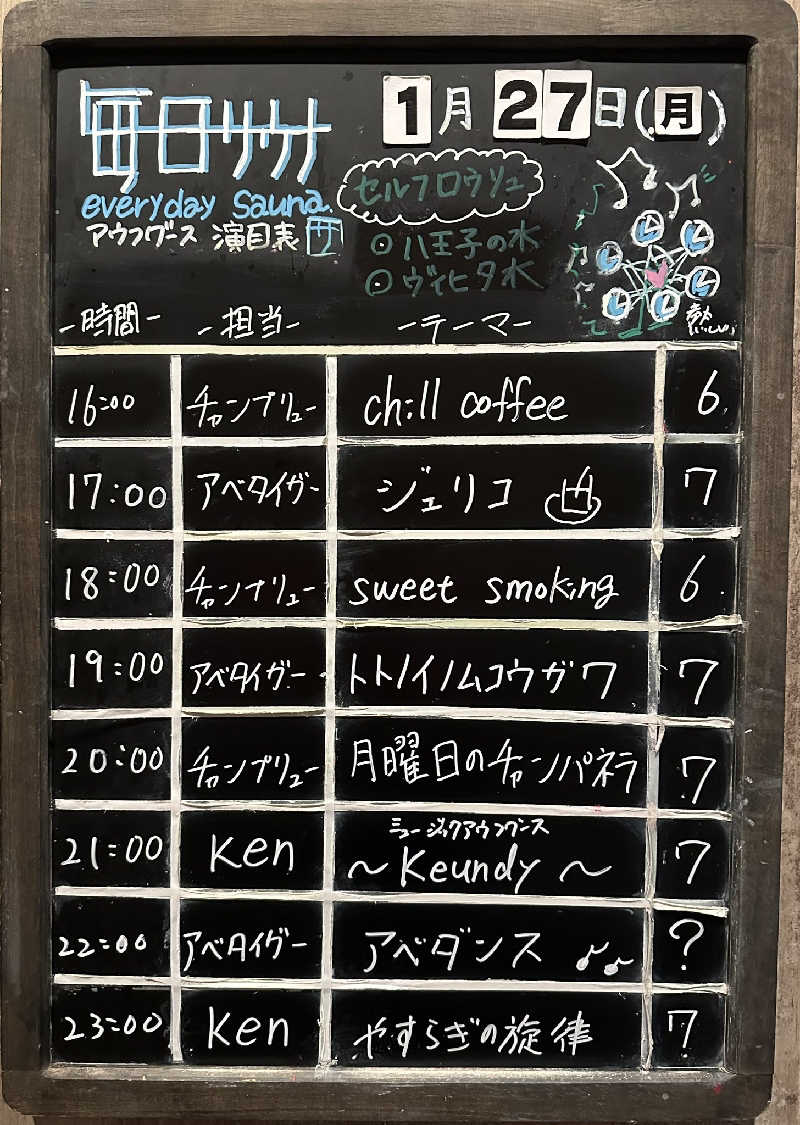 毎日サウナ
1月27日(月)
everyday Sauna.
アウフグース 演目表 サ
セルフロウリュ
◎八王子の水
◎ヴィヒタ水
-時間- -担当- -テーマ- 熱
16:00 チャンブリュー chill coffee 6
17:00 アベタイガー ジェリコ 7
18:00 チャンブリュー sweet smoking 6
19:00 アベタイガー トトノイノムコウガワ 7
20:00 チャンブリュー 月曜日のチャンパネラ 7
ミュージックアウフグース
21:00 Ken ～Keundy～ 7
22:00 アベタイガー アベダンス ♪♪ ?
23:00 Ken やすらぎの旋律 7